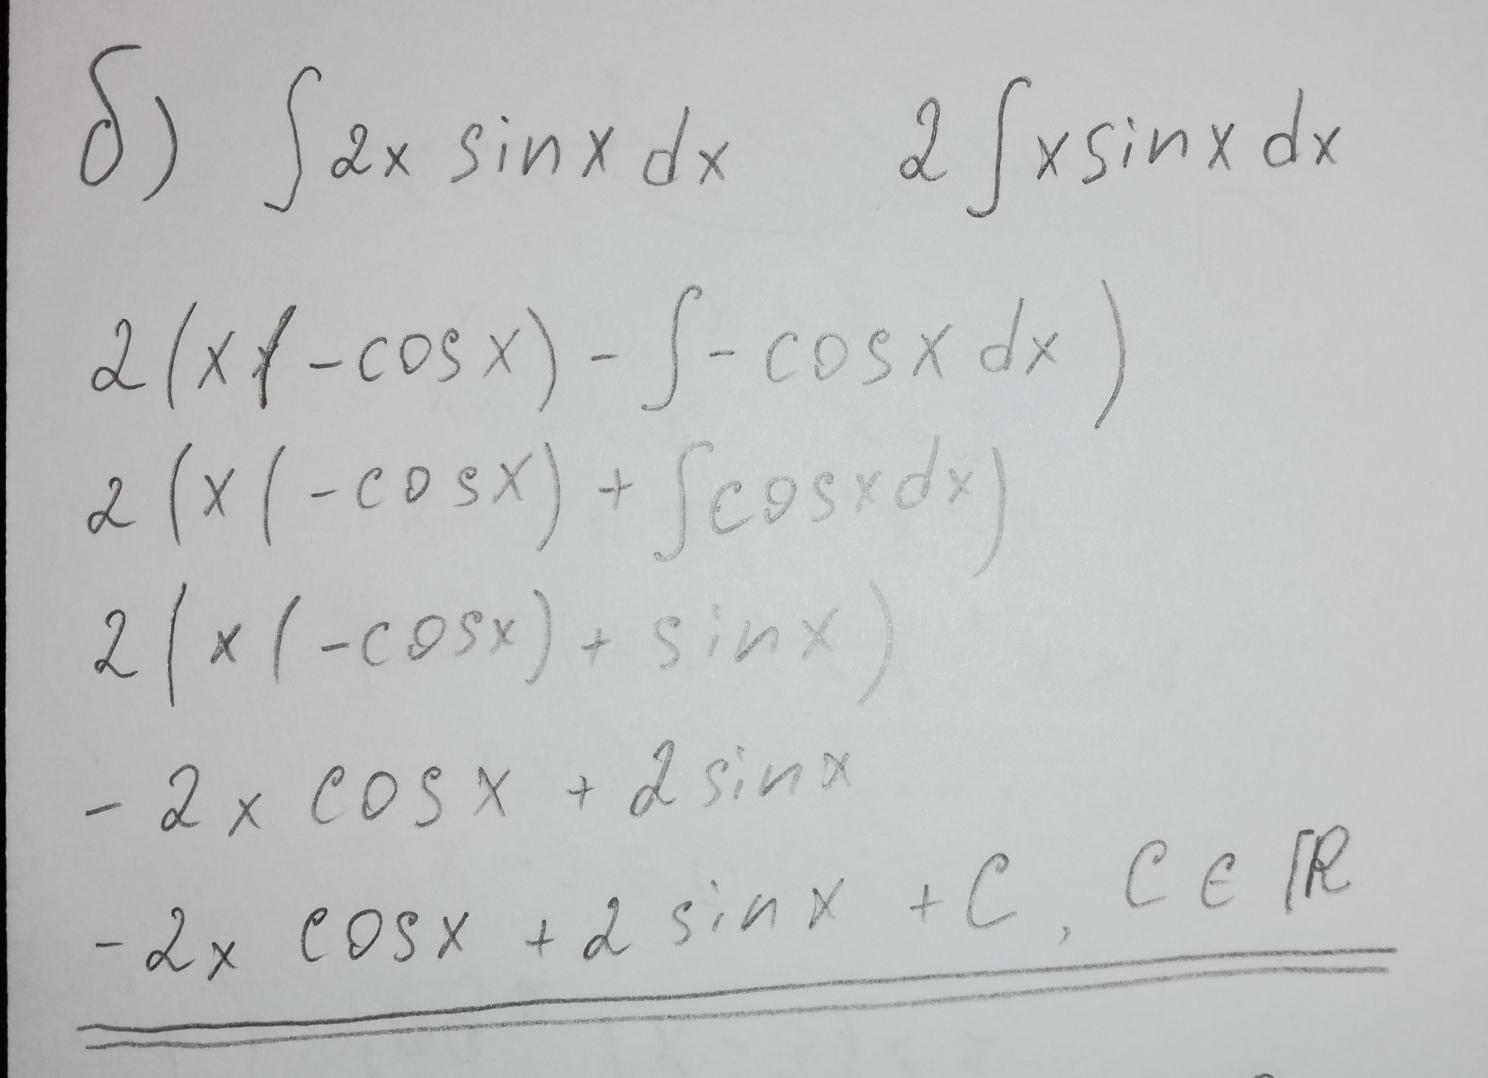 б) ∫2x sinx dx 2∫xsinx dx
2(x(-cosx) - ∫-cosx dx)
2(x(-cosx) + ∫cosxdx)
2(x(-cosx) + sinx)
-2x cosx + 2sinx
-2x cosx + 2 sinx + C, C ∈ ℝ